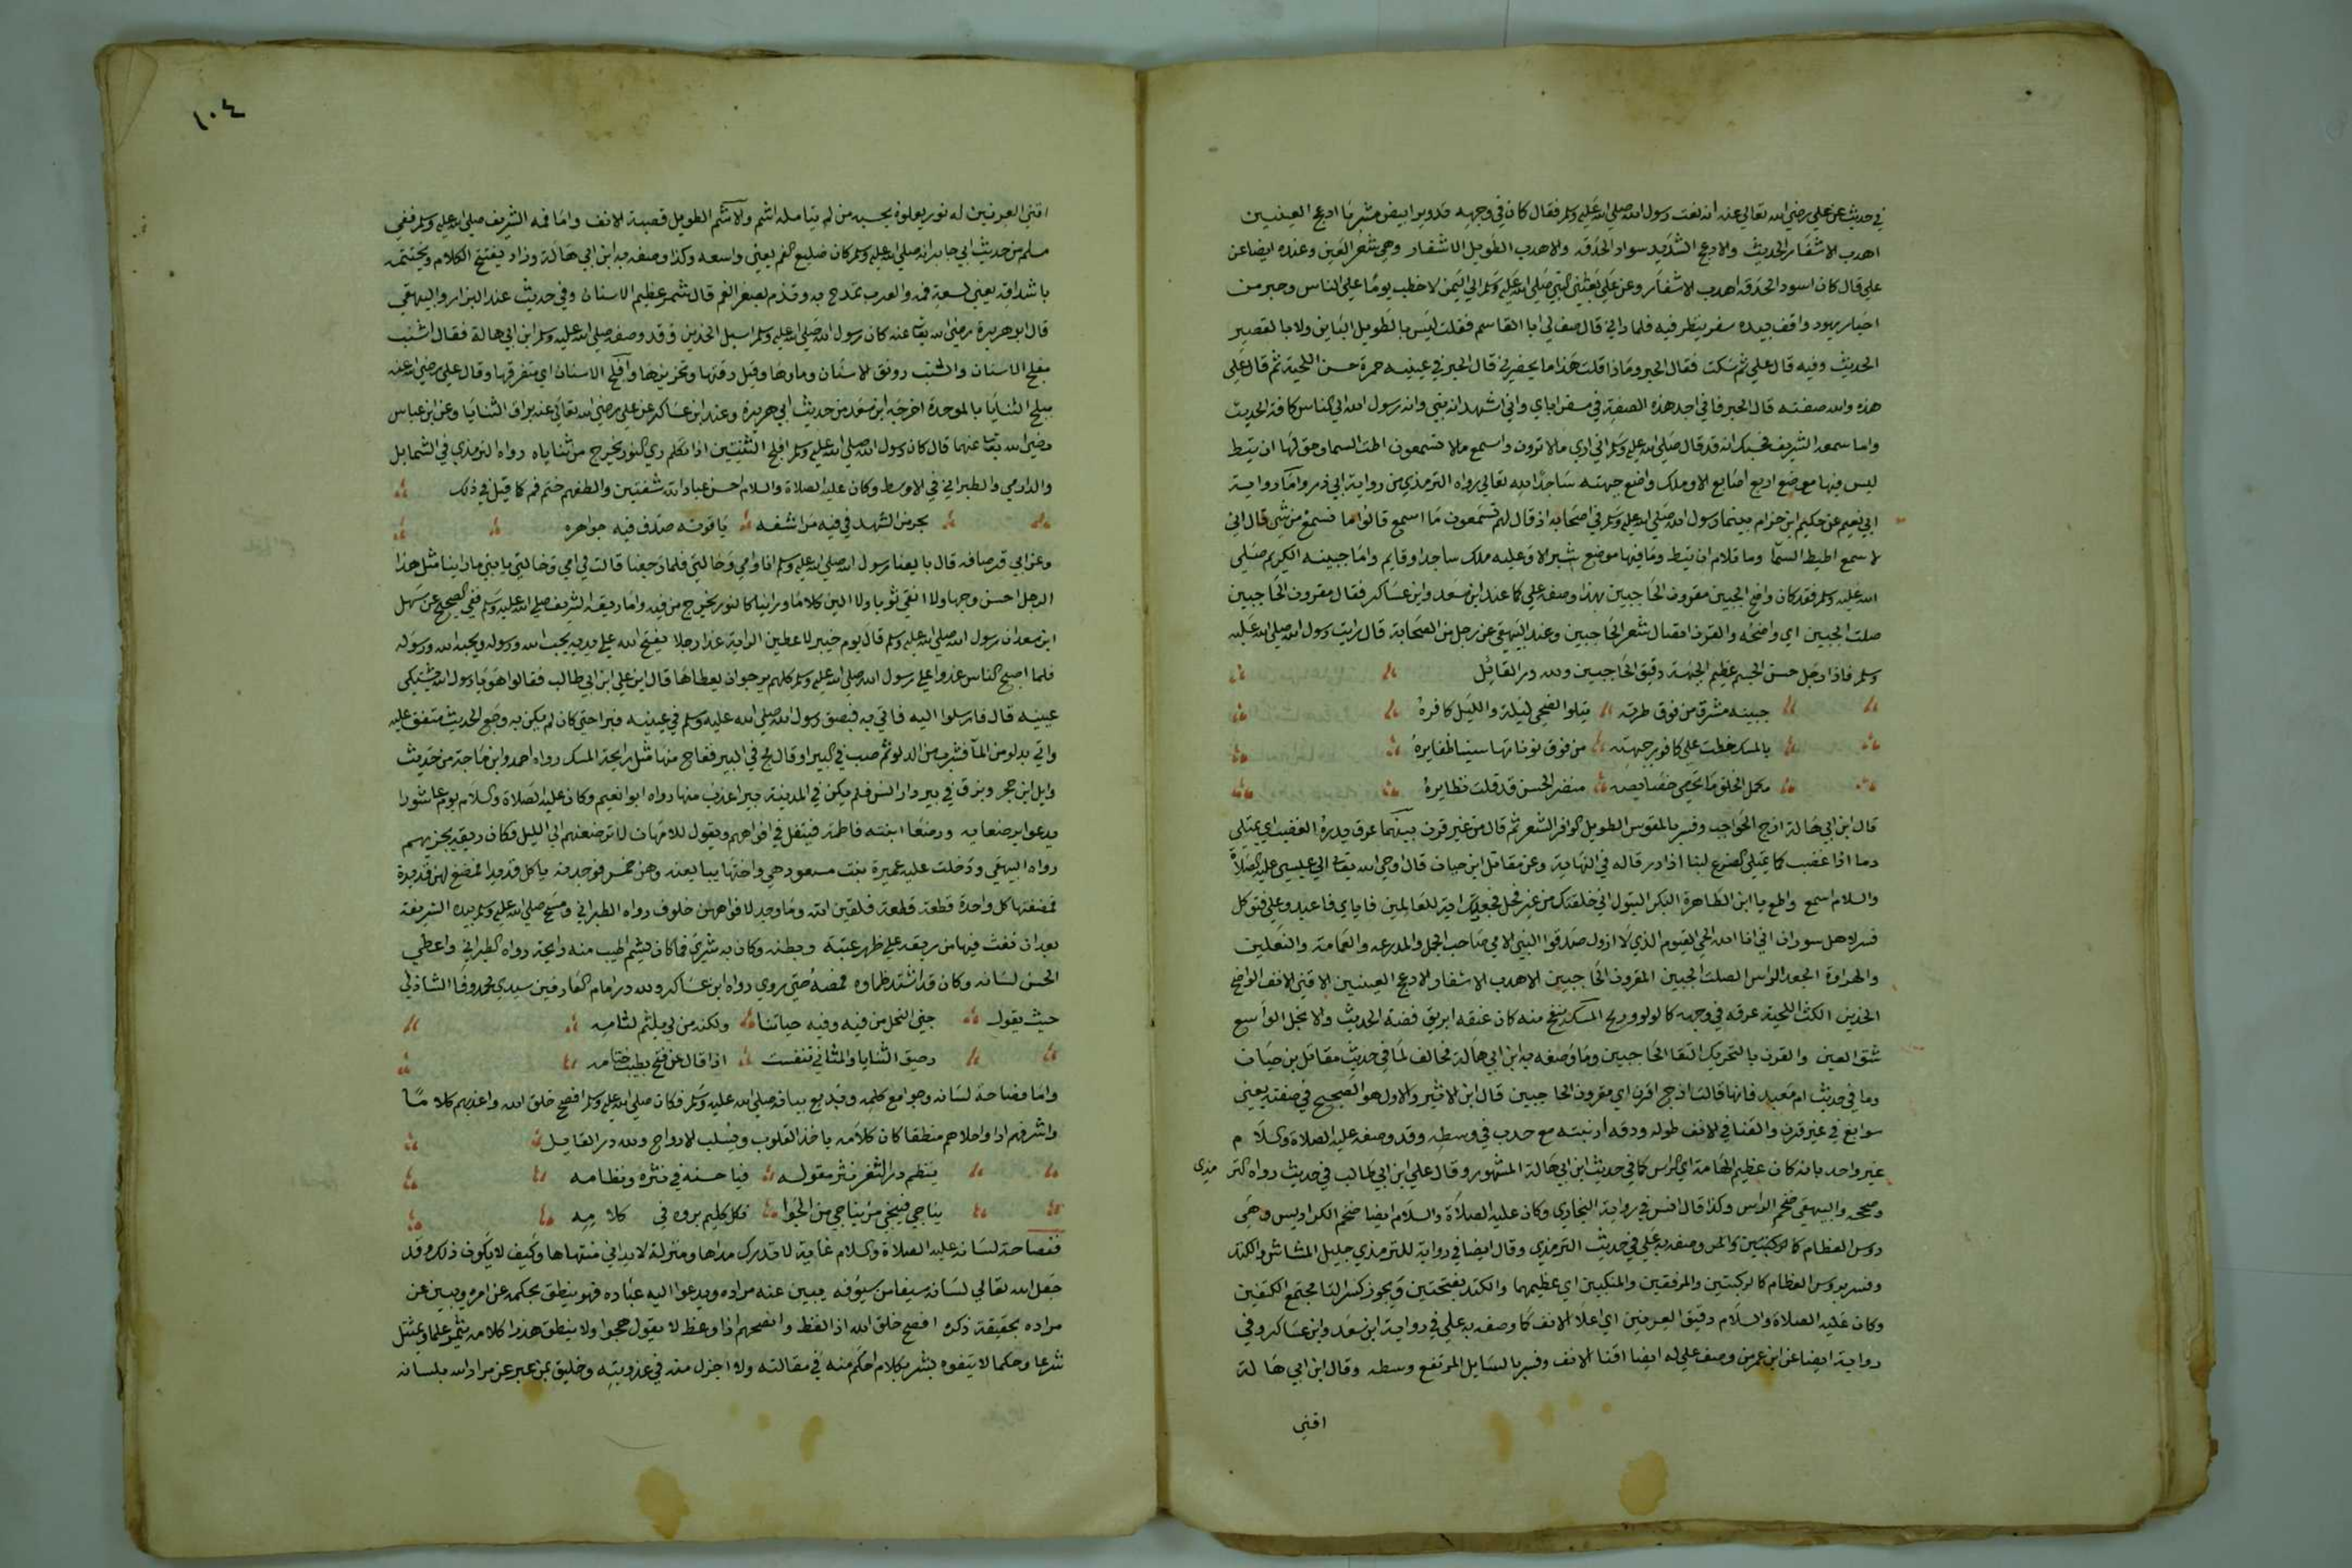 في حديث عن علي رضي الله تعالى عنه انه نعت رسول الله صلى الله عليه وسلم فقال كان في وجهه تدوير ابيض مشربا ادعج العينين
اهدب الاشفار الحديث والادعج الشديد سواد الحدقه والاهدب الطويل الاشفار وهي شعر العين وعنده ايضا عن
علي قال كان اسود الحدقه اهدب الاشفار وعن علي بعثني النبي صلى الله عليه وسلم الى اليمن لاخطب يوما على الناس وحبر من
احبار يهود واقف بيده سفر ينظر فيه فلما راني قال صف لي ابا القاسم فقلت ليس بالطويل الباين ولا بالقصير
الحديث وفيه قال علي ثم سكت فقال الحبر وماذا قلت هذا ما يحضرني قال الحبر في عينيه حمرة حسن اللحية ثم قال علي
هذه والله صفته قال الحبر فاني اجد هذه الصفة في سفر اباي واني اشهد انه نبي وانه رسول الله الى الناس كافة الحديث
واما سمعه الشريف فحسبك انه قد قال صلى الله عليه وسلم اني ارى مالا ترون واسمع مالا تسمعون اطت السما وحق لها ان تيط
ليس فيها موضع اربع اصابع الا وملك واضع جبهته ساجدا لله تعالى رواه الترمذي من رواية ابي ذر واما رواية
ابي نعيم عن حكيم ابن حزام بينما رسول الله صلى الله عليه وسلم في اصحابه اذ قال لهم تسمعون ما اسمع قالوا ما نسمع من شي قال اني
لا سمع اطيط السمآ وما تلام ان تيط وما فيها موضع شبر الا وعليه ملك ساجد او قايم واما جبينه الكريم صلى
الله عليه وسلم فقد كان واضح الجبين مقرون الحاجبين بهذا وصفه علي كما عند ابن سعد وابن عساكر فقال مقرون الحاجبين
صلت الجبين اي واضحه والقرن اتصال شعر الحاجبين وعند البيهقي عن رجل من الصحابة قال رايت رسول الله صلى الله عليه
وسلم فاذا رجل حسن الجسم عظيم الجبهة دقيق الحاجبين ولله در القائل
جبينه مشرق من فوق طرته يتلو الضحى ليله والليل كافره
بالمسك خطت على كافور جبهته من فوق نوناتها سينا ظفايره
مكمل الخلق ما تحصى خصايصه منضر الحسن قد قلت نظايره
قال ابن ابي هالة ازج الحواجب وفسر بالمقوس الطويل الوافر الشعر ثم قال من غير قرن بينهما عرق يدره الغضب اي يمتلي
دما اذا غضب كما يمتلي الضرع لبنا اذا در قاله في النهاية وعن مقاتل ابن حيان قال اوحى الله تعالى الى عيسى عليه الصلاة
والسلام اسمع واطع يا ابن الطاهرة البكر البتول اني خلقتك من غير فحل فجعلتك اية للعالمين فاياي فاعبد وعلي فتوكل
فسر اهل سوران اني انا الله الحي القيوم الذي لا ازول صدقوا النبي الامي صاحب الجمل والمدرعه والعمامة والنعلين
والهراوة الجعد الراس الصلت الجبين المقرون الحاجبين الاهدب الاشفار الادعج العينين الاقنى الانف الواضح
الخدين الكث اللحية عرقه في وجهه كاللولو وريح المسك ينفح منه كان عنقه ابريق فضة الحديث والانجل الواسع
شق العين والقرن بالتحريك التقا الحاجبين وما وصفه به ابن ابي هالة مخالف لما في حديث مقاتل بن حيان
وما في حديث ام معبد فانها قالت ازج اقرن اي مقرون الحاجبين قال ابن الاثير والاول هو الصحيح في صفته يعني
سوابغ في غير قرن والقنا في الانف طوله ودقه ارنبته مع حدب في وسطه وقد وصفه عليه الصلاة والسلام
غير واحد بانه كان عظيم الهامة اي الراس كما في حديث ابن ابي هالة المشهور وقال علي ابن ابي طالب في حديث رواه التر مذى
وصححه والبيهقي ضخم الراس وكذا قال انس في رواية البخاري وكان عليه الصلاة والسلام ايضا ضخم الكراديس وهي
روس العظام كالركبتين والمر وصفه به علي في حديث الترمذي وقال ايضا في رواية للترمذي جليل المشاش والكتد
وفسر بروس العظام كالركبتين والمرفقين والمنكبين اي عظيمهما والكتد بفتحتين ويجوز كسر التا مجتمع الكتفين
وكان عليه الصلاة والسلام دقيق العرنين اي اعلا الانف كما وصفه به علي في رواية ابن سعد وابن عساكر وفي
رواية ايضا عن ابن عمر من وصف علي له ايضا اقنا الانف وفسر بالسايل المرتفع وسطه وقال ابن ابي هالة
اقنى
١٠٤
اقنى العرنين له نور يعلوه يحسبه من لم يتامله اشم والاشم الطويل قصبة الانف واما فمه الشريف صلى الله عليه وسلم ففي
مسلم من حديث ابي جابر انه صلى الله عليه وسلم كان ضليع الفم يعني واسعه وكذا وصفه به ابن ابي هالة وزاد يفتتح الكلام ويختتمه
باشداقه يعني لسعة فمه والعرب تمدح به وتذم بصغر الفم قال شمر عظيم الاسنان وفي حديث عند البزار والبيهقي
قال ابو هريرة رضي الله تعالى عنه كان رسول الله صلى الله عليه وسلم اسيل الخدين وقد وصفه صلى الله عليه وسلم ابن ابي هالة فقال اشنب
مفلج الاسنان والشنب رونق الاسنان وماوها وقيل رقتها وتحزيزها وافلج الاسنان اي متفرقها وقال علي رضي الله عنه
مبلج الثنايا بالموحدة اخرجه ابن سعد من حديث ابي هريرة وعند ابن عساكر عن علي رضي الله تعالى عنه براق الثنايا وعن ابن عباس
رضي الله تعالى عنهما قال كان رسول الله صلى الله عليه وسلم افلج الثنيتين اذا تكلم ري كالنور يخرج من ثناياه رواه الترمذي في الشمايل
والدارمي والطبراني في الاوسط وكان عليه الصلاة والسلام احسن عباد الله شفتين والطفهم ختم فم كما قيل في ذلك
بحر من الشهد في فيه مراشفه ياقوته صدف فيه جواهره
وعن ابي قرصافه قال بايعنا رسول الله صلى الله عليه وسلم انا وامي وخالتي فلما رجعنا قالت لي امي وخالتي يا بني ما راينا مثل هذا
الرجل احسن وجها ولا انقى ثوبا ولا الين كلاما وراينا كالنور يخرج من فيه واما ريقه الشريف صلى الله عليه وسلم ففي الصحيح عن سهل
ابن سعد ان رسول الله صلى الله عليه وسلم قال يوم خيبر لاعطين الراية غدا رجلا يفتح الله على يديه يحب الله ورسوله ويحبه الله ورسوله
فلما اصبح الناس غدوا على رسول الله صلى الله عليه وسلم كلهم يرجو ان يعطاها قال اين علي ابن ابي طالب فقالوا هو يا رسول الله يشتكى
عينيه قال فارسلوا اليه فاتي به فبصق رسول الله صلى الله عليه وسلم في عينيه فبرا حتى كان لم يكن به وجع الحديث متفق عليه
واتي بدلو من المآ فشرب من الدلو ثم صب في البير او قال مج في البير ففاح منها مثل رايحة المسك رواه احمد وابن ماجة من حديث
وايل ابن حجر وبزق في بير دار انس فلم يكن في المدينة بيرا عذب منها رواه ابو نعيم وكان عليه الصلاة والسلام يوم عاشورا
يدعو برضعايه ورضعا ابنته فاطمة فيتفل في افواههم ويقول للامهات لا ترضعنهم الى الليل فكان ريقه يجزيهم
رواه البيهقي ودخلت عليه عميرة بنت مسعود هي واخواتها يبايعنه وهن خمس فوجدنه ياكل قديدا فمضغ لهن قديدة
فمضغتها كل واحدة قطعة قطعة فلقين الله وما وجد لافواههن خلوف رواه الطبراني ومسح صلى الله عليه وسلم بيده الشريفة
بعد ان نفث فيها من ريقه على ظهر عتبة وبطنه وكان به شري فما كان يشم اطيب منه رايحة رواه الطبراني واعطى
الحسن لسانه وكان قد اشتد ظماوه فمصه حتى روي رواه ابن عساكر ولله در امام العارفين سيدي محمد وفا الشاذلي
حيث يقول جنى النحل من فيه وفيه حياتنا ولكنه من لي بلثم لثامه
رحيق الثنايا والمثاني تنفست اذا قال عن فتح بطيب ختامه
واما فصاحة لسانه وجوامع كلمه وبديع بيانه صلى الله عليه وسلم فكان صلى الله عليه وسلم افصح خلق الله واعذبهم كلاما
واشرفهم ادا واحلاهم منطقا كان كلامه ياخذ القلوب ويسلب الارواح ولله در القايل
ينظم در الثغر نثر مقوله فيا حسنه في نثره ونظامه
يناجي فينجي من يناجي من الجوا فكل كليم بروه في كلامه
ففصاحة لسانه عليه الصلاة والسلام غاية لا تدرك مداها ومنزلة لا يدانى منتهاها وكيف لا يكون ذلك وقد
جعل الله تعالى لسانه سيفا من سيوفه يبين عنه مراده ويدعو اليه عباده فهو ينطق بحكمه عن امره ويبين عن
مراده بحقيقة ذكره افصح خلق الله اذا لفظ وانصحهم اذا وعظ لا يقول هجرا ولا ينطق هذرا كلامه يثمر علما ويمتثل
شرعا وحكما لا يتفوه بشر بكلام احكم منه في مقالته ولا اجزل منه في عذوبته وخليق بمن عبر عن مراد الله بلسانه